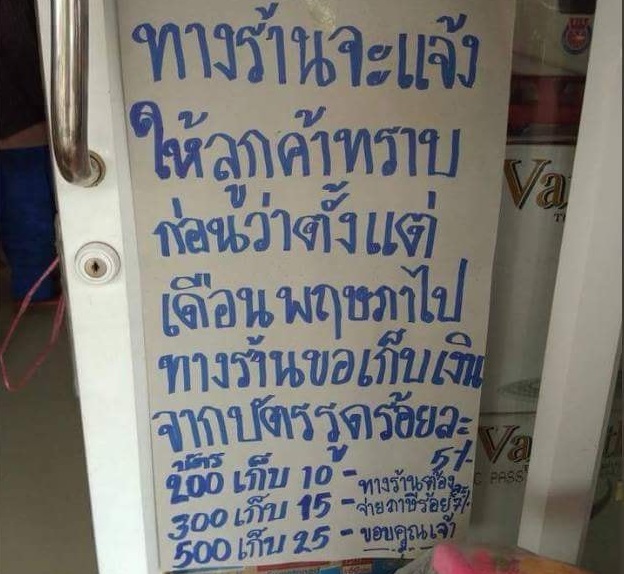 ทางร้านจะแจ้ง
ให้ลูกค้าทราบ
ก่อนว่าตั้งแต่
เดือนพฤษภาไป
ทางร้านขอเก็บเงิน
จากบัตรรูดร้อยละ
5/-
บัตร
200 เก็บ 10 -
300 เก็บ 15 -
500 เก็บ 25 -
ทางร้านต้อง
จ่ายภาษีร้อย
ขอบคุณเจ้า
Va
Va
PASS